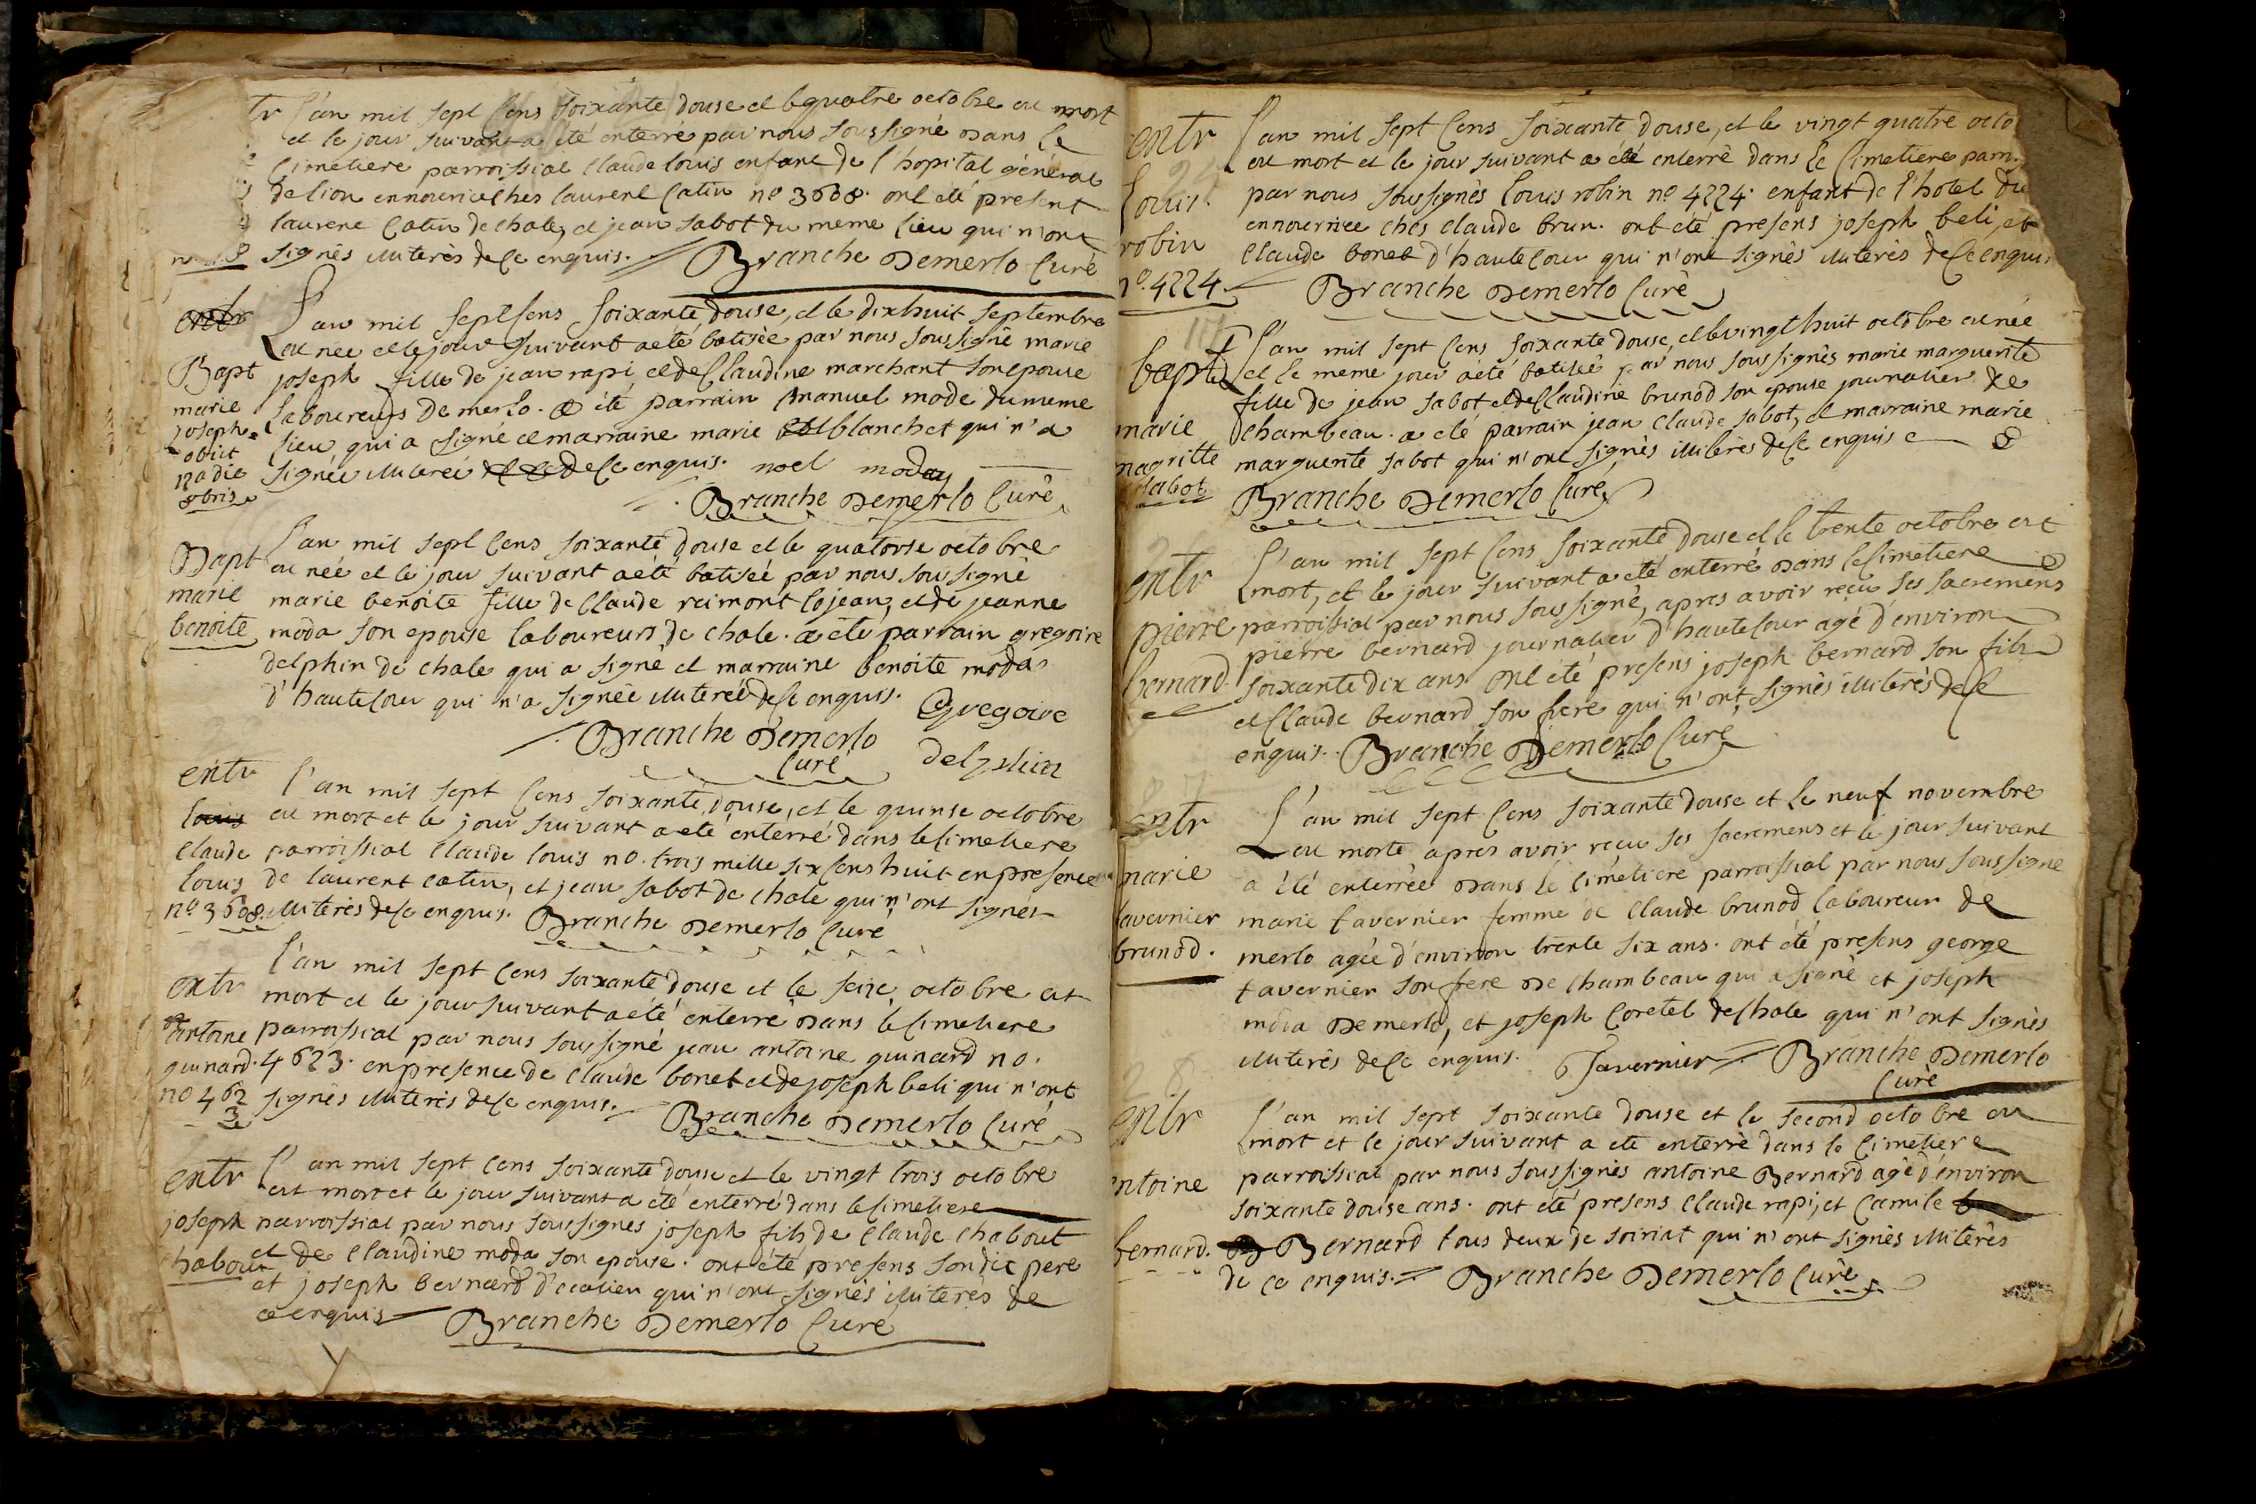 tr L'an mil sept cens soixante douse et le quatre octobre eu mort
et le jour suivant a été enterré par nous soussigné dans le
cimetiere parroissial claude louis enfant de l'hopital général
de lion ennourice ches laurent catin no 3608. ont été present
laurene catin de chale, et jean sabot du meme lieu qui n'ont
signés illiterès de ce enquis. Branche Demerlo Curé
entr L'an mil sept sens soixante douse, et le dixhuit septembre
eu née et le jour suivant a eté batisée par nous soussigné marie
Bapt joseph fille de jean rapi et de Claudine marchant son epouse
marie laboureurs de merlo. a été parrain manuel mode du meme
joseph lieu, qui a signé et marraine marie blanchet qui n'a
obiit
nadie signée illiterée de ce enquis. noel moda
8bris
Branche Demerlo Curé
L'an mil sept cens soixante douse et le quatorse octobre
Bapt eu née et le jour suivant a été batiseé par nous soussigné
marie marie benoite fille de Claude reimont cojean, et de jeanne
benoite moda son epouse laboureurs de chale. a eté parrain gregoire
delphin de chale qui a signé et marraine benoite moda
d'hautecour qui n'a signée illitereé de ce enquis. Gregoire
Branche Demerlo delphin
Curé
entr L'an mil sept cens soixante, douse, et le quinse octobre
louis eu mort et le jour suivant a eté enterré dans le simetiere
claude parroissial Claude louis no. trois mille six sens huit en presence
louis de laurent catin, et jean sabot de chale qui n'ont signés
no 3608. illiterès de ce enquis. Branche Demerlo Curé
L'an mil sept cens soixante douse et le seize octobre eut
entr mort et le jour suivant a été enterré dans le simetiere
antoine parroissial par nous soussigné jean antoine guinard no.
guinard. 4623. en presence de claude bonet et de joseph beli qui n'ont
no 462
3 signés illiterès de ce enquis. Branche Demerlo Curé
entr L'an mil sept cens soixante douse et le vingt trois octobre
eut mort et le jour suivant a été enterré dans le simetiere
joseph parroissial par nous soussignes joseph fils de claude chabout
chabout et de claudine moda son epouse. ont été presens sondit pere
et joseph bernard d'ecolieu qui n'ont signés illiterès de
ce enquis Branche Demerlo Curé
entr L'an mil sept cens soixante douse, et le vingt quatre octo
eu mort et le jour suivant a été enterré dans le cimetiere parr.
Louis par nous soussignés louis robin no 4224. enfant de l'hotel du
robin ennourrice ches claude brun. ont eté presens joseph beli, et
claude bonet d'hautecour qui n'ont signés illiterès de ce enquis
no. 4224. Branche Demerlo Curé
L'an mil sept cens soixante douse, et le vingt huit octobre eu née
bapt et le meme jour a été batisée par nous soussignès marie marguerite
fille de jean sabot et de Claudine brunod son epouse journalier de
marie chambeau. a eté parrain jean claude sabot, et marraine marie
magritte marguerite sabot qui n'ont signés illiterès de ce enquis
sabot Branche Demerlo Curé
L'an mil sept cens soixante douse et le trente octobre eut
entr mort, et le jour suivant a eté enterré dans le simetiere
pierre parroissial par nous soussigné, apres avoir reçu ses sacremens
pierre bernard journalier d'hautecour agé d'environ
bernard soixante dix ans ont été presens joseph bernard son fils
et Claude bernard son frere qui n'ont signès illiterès de ce
enquis. Branche Demerlo Curé
entr L'an mil sept cens soixante douse et le neuf novembre
eu morte apres avoir reçu ses sacremens et le jour suivant
marie a été enterrée dans le cimétiere parroissial par nous soussigné
tavernier marie tavernier femme de claude brunod laboureur de
brunod. merlo agée d'environ trente six ans. ont été presens george
tavernier son frere de chambeau qui a signé et joseph
moda demerlo, et joseph coretel de chale qui n'ont signés
illiterès de ce enquis. G Tavernier Branche Demerlo
Curé
entr L'an mil sept soixante douse et le second octobre eu
mort et le jour suivant a eté enterré dans le cimetiere
antoine parroissial par nous soussignés antoine Bernard agé d'environ
soixante douse ans. ont été presens claude rapi, et Camile
bernard. Bernard tous deux de soiriat qui n'ont signès illiterès
de ce enquis. Branche Demerlo Curé